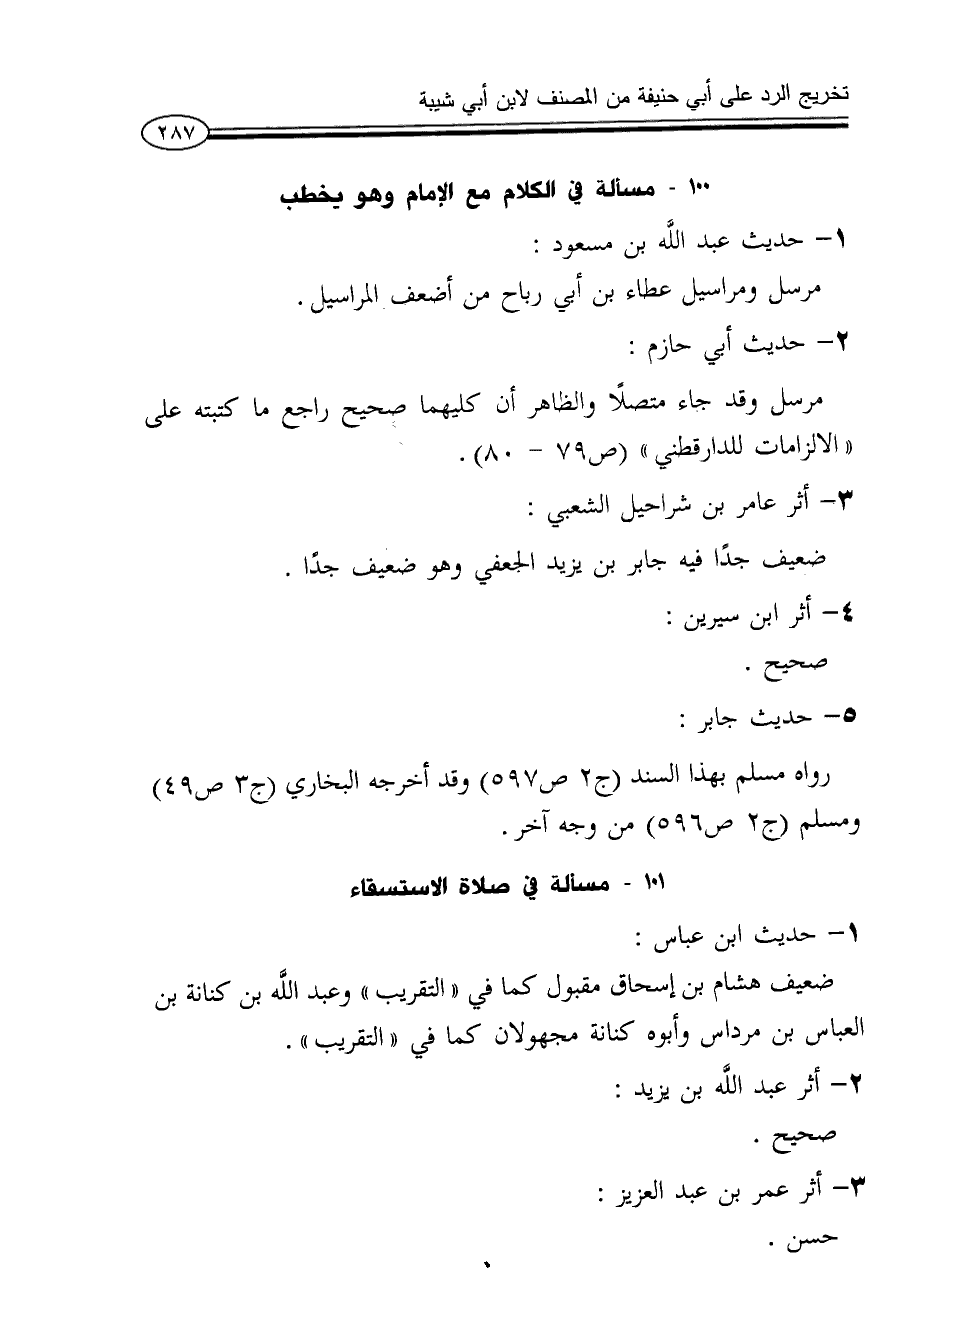 تخريج الرد على أبي حنيفة من المصنف لابن أبي شيبة
٢٨٧
١٠٠ - مسألة في الكلام مع الإمام وهو يخطب
١- حديث عبد اللَّه بن مسعود :
مرسل ومراسيل عطاء بن أبي رباح من أضعف المراسيل .
٢- حديث أبي حازم :
مرسل وقد جاء متصلًا والظاهر أن كليهما صحيح راجع ما كتبته على
« الالزامات للدارقطني » (ص٧٩ - ٨٠) .
٣- أثر عامر بن شراحيل الشعبي :
ضعيف جدًا فيه جابر بن يزيد الجعفي وهو ضعيف جدًا .
٤- أثر ابن سيرين :
صحيح .
٥- حديث جابر :
رواه مسلم بهذا السند (ج٢ ص٥٩٧) وقد أخرجه البخاري (ج٣ ص٤٩)
ومسلم (ج٢ ص٥٩٦) من وجه آخر .
١٠١ - مسألة في صلاة الاستسقاء
١- حديث ابن عباس :
ضعيف هشام بن إسحاق مقبول كما في « التقريب » وعبد اللَّه بن كنانة بن
العباس بن مرداس وأبوه كنانة مجهولان كما في « التقريب » .
٢- أثر عبد اللَّه بن يزيد :
صحيح .
٣- أثر عمر بن عبد العزيز :
حسن .